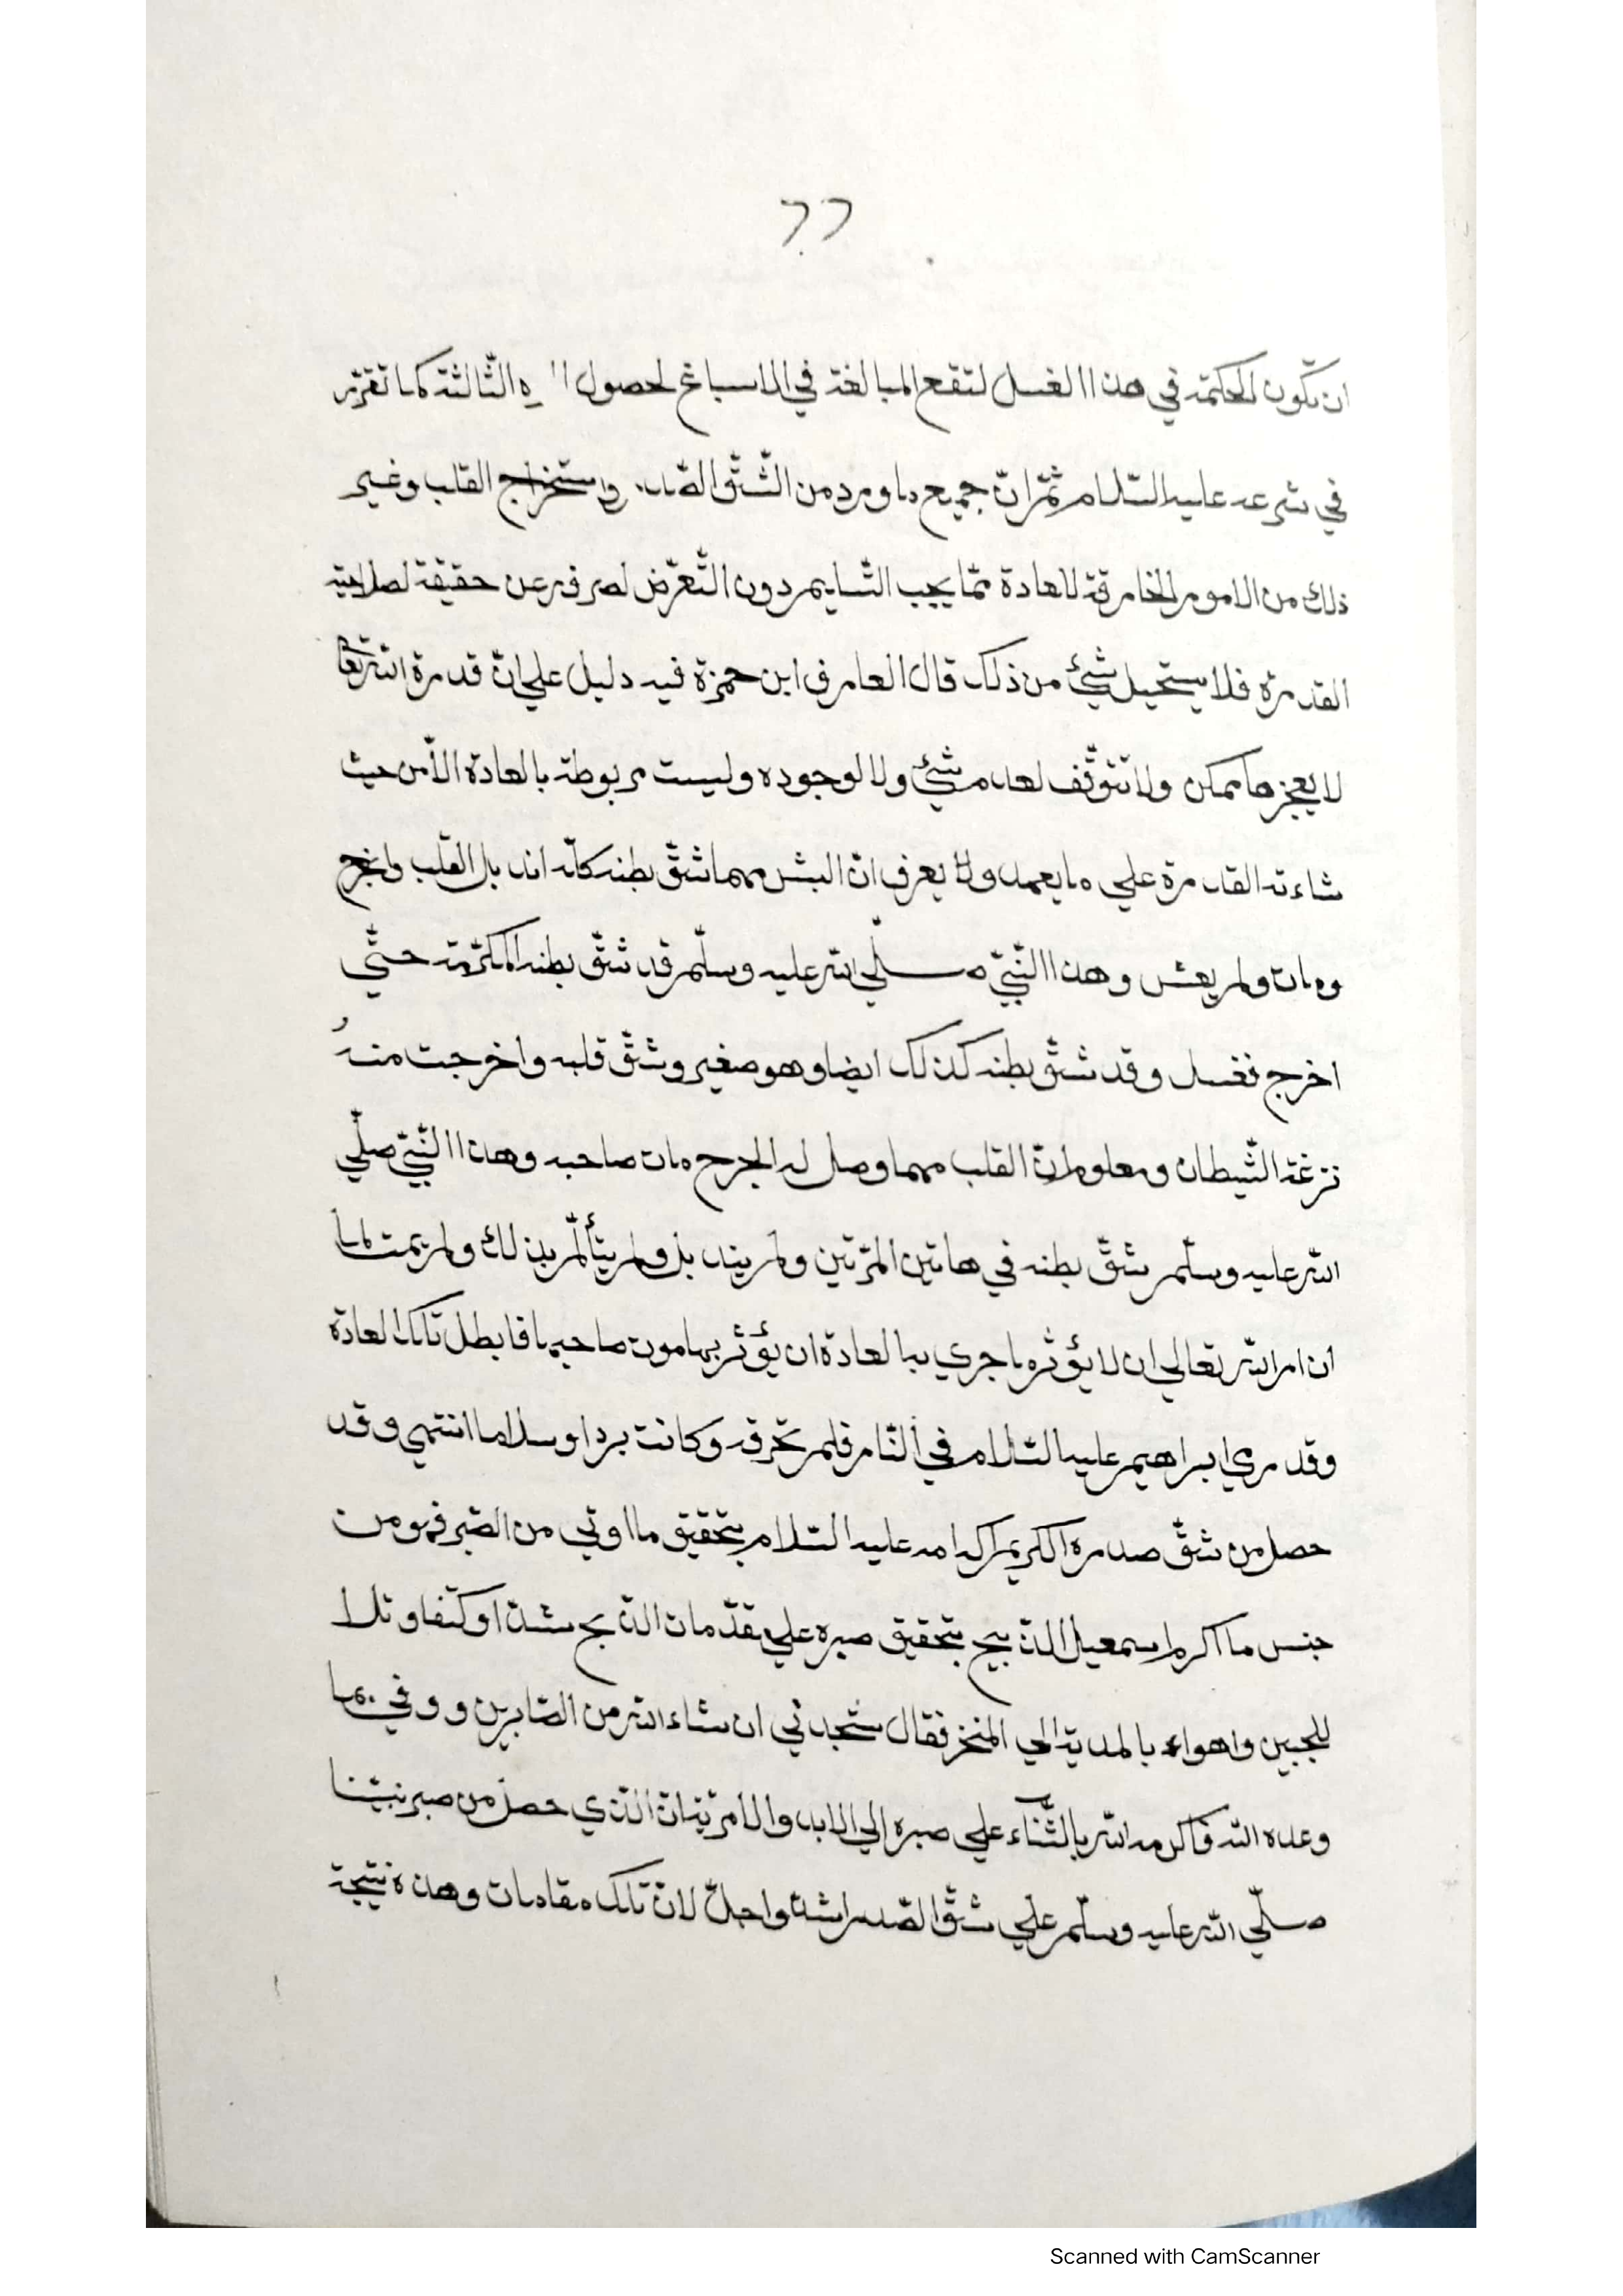 ٦٦
ان تكون الحكمة في هذا الغسل لتقع المبالغة في الاسباغ لحصول ال ه الثّالثة كما تقرّر
في شرعه عليه السّلام ثمّ انّ جميع ما ورد من الشّقّ الصّدر واستخراج القلب وغير
ذلك من الامور الخارقة للعادة ممّا يجب التّسليم دون التّعرّض لصرفه عن حقيقة لصلاحية
القدرة فلا يستحيل شئ من ذلك قال العارف ابن حمزة فيه دليل علي انّ قدرة الله تعا
لا يعجزها ممكن ولا تتوقّف لعدم شئ ولا لوجوده وليست مربوطة بالعادة الّا من حيث
شاءته القدرة علي ما يعهد ولا يعرف انّ البشر مهما شقّ بطنه كلّه اندبل القلب وانجرح
ومات ولم يعش وهذا النّبيّ صلّي الله عليه وسلّم قد شقّ بطنه المكرّمة حتّي
اخرج فغسل وقد شقّ بطنه كذلك ايضا وهو صغير وشقّ قلبه واخرجت منهُ
نزغة الشّيطان ومعلوم انّ القلب مهما وصل له الجرح مات صاحبه وهذا النّبيّ صلّي
الله عليه وسلّم شقّ بطنه في هاتين المرّتين ولم يندبل ولم يتألّم بذلك ولم يمت لما
ان امر الله تعالي ان لا يؤثر ما جري ببالعادة ان يؤثر بها موت صاحبها فابطل تلك العادة
وقد رمي ابراهيم عليه السّلام في النّار فلم تحرقه وكانت بردا وسلاما انتهي وقد
حصل من شقّ صدره الكريم اكرامه عليه السّلام بتحقيق ما اوتي من الصّبر فهو من
جنس ما اكرم اسمعيل الذّبيح بتحقيق صبره علي مقدّمات الذّبح شدّا وكتفا وتلا
للجبين واهواء بالمدية الي المنحر فقال ستجدني ان شاء الله من الصّابرين ووفي بما
وعده الله فاكرمه الله بالثّناء علي صبره الي الابد والامرية انّ الّذي حصل من صبر نبيّنا
صلّي الله عليه وسلّم علي شقّ الصّدر اشدّ واجلّ لانّ تلك مقامات وهذه نتيجة
Scanned with CamScanner